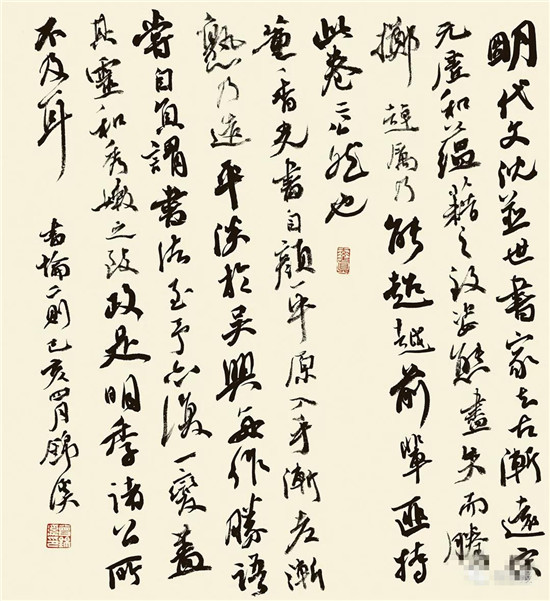 明代文沈並世書家去古漸遠宋
元虛和蘊藉之致姿態盡失而騰
擲趠厲乃能超越前輩匪特
此卷二公然也
董香光書自顏平原入手漸老漸
熟乃造平淡於吳興每作勝語
嘗自負謂書法至予亦復一變蓋
其靈和秀嫩之致政是明季諸公所
不及耳
書論二則己亥四月錦溪